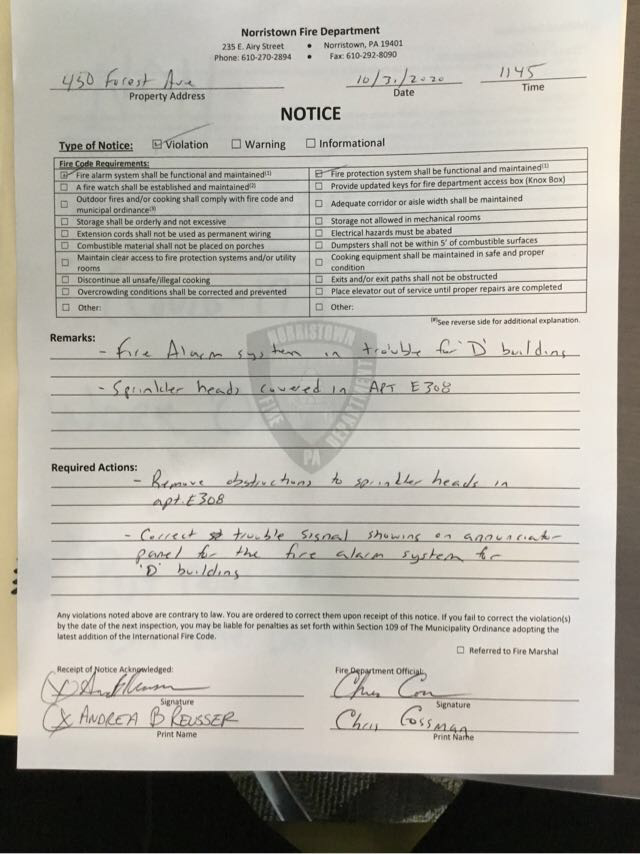 Norristown Fire Department
235 E. Airy Street • Norristown, PA 19401
Phone: 610-270-2894 • Fax: 610-292-8090
450 Forest Ave 10/31/2020 1145
Property Address Date Time
NOTICE
Type of Notice: ☑ Violation ☐ Warning ☐ Informational
Fire Code Requirements:
☑ Fire alarm system shall be functional and maintained(1) ☑ Fire protection system shall be functional and maintained(1)
☐ A fire watch shall be established and maintained(2) ☐ Provide updated keys for fire department access box (Knox Box)
☐ Outdoor fires and/or cooking shall comply with fire code and ☐ Adequate corridor or aisle width shall be maintained
municipal ordinance(3)
☐ Storage shall be orderly and not excessive ☐ Storage not allowed in mechanical rooms
☐ Extension cords shall not be used as permanent wiring ☐ Electrical hazards must be abated
☐ Combustible material shall not be placed on porches ☐ Dumpsters shall not be within 5' of combustible surfaces
☐ Maintain clear access to fire protection systems and/or utility ☐ Cooking equipment shall be maintained in safe and proper
rooms condition
☐ Discontinue all unsafe/illegal cooking ☐ Exits and/or exit paths shall not be obstructed
☐ Overcrowding conditions shall be corrected and prevented ☐ Place elevator out of service until proper repairs are completed
☐ Other: ☐ Other:
(#)See reverse side for additional explanation.
Remarks:
- Fire Alarm system in trouble for 'D' building
- Sprinkler heads covered in APT E308
NORRISTOWN
FIRE DEPARTMENT
PA
Required Actions:
- Remove obstructions to sprinkler heads in
apt. E308
- Correct trouble signal showing on annunciator
panel for the fire alarm system for
'D' building
Any violations noted above are contrary to law. You are ordered to correct them upon receipt of this notice. If you fail to correct the violation(s)
by the date of the next inspection, you may be liable for penalties as set forth within Section 109 of The Municipality Ordinance adopting the
latest addition of the International Fire Code.
☐ Referred to Fire Marshal
Receipt of Notice Acknowledged: Fire Department Official:
X
Signature Signature
X ANDREA B REUSSER Chris Gossman
Print Name Print Name